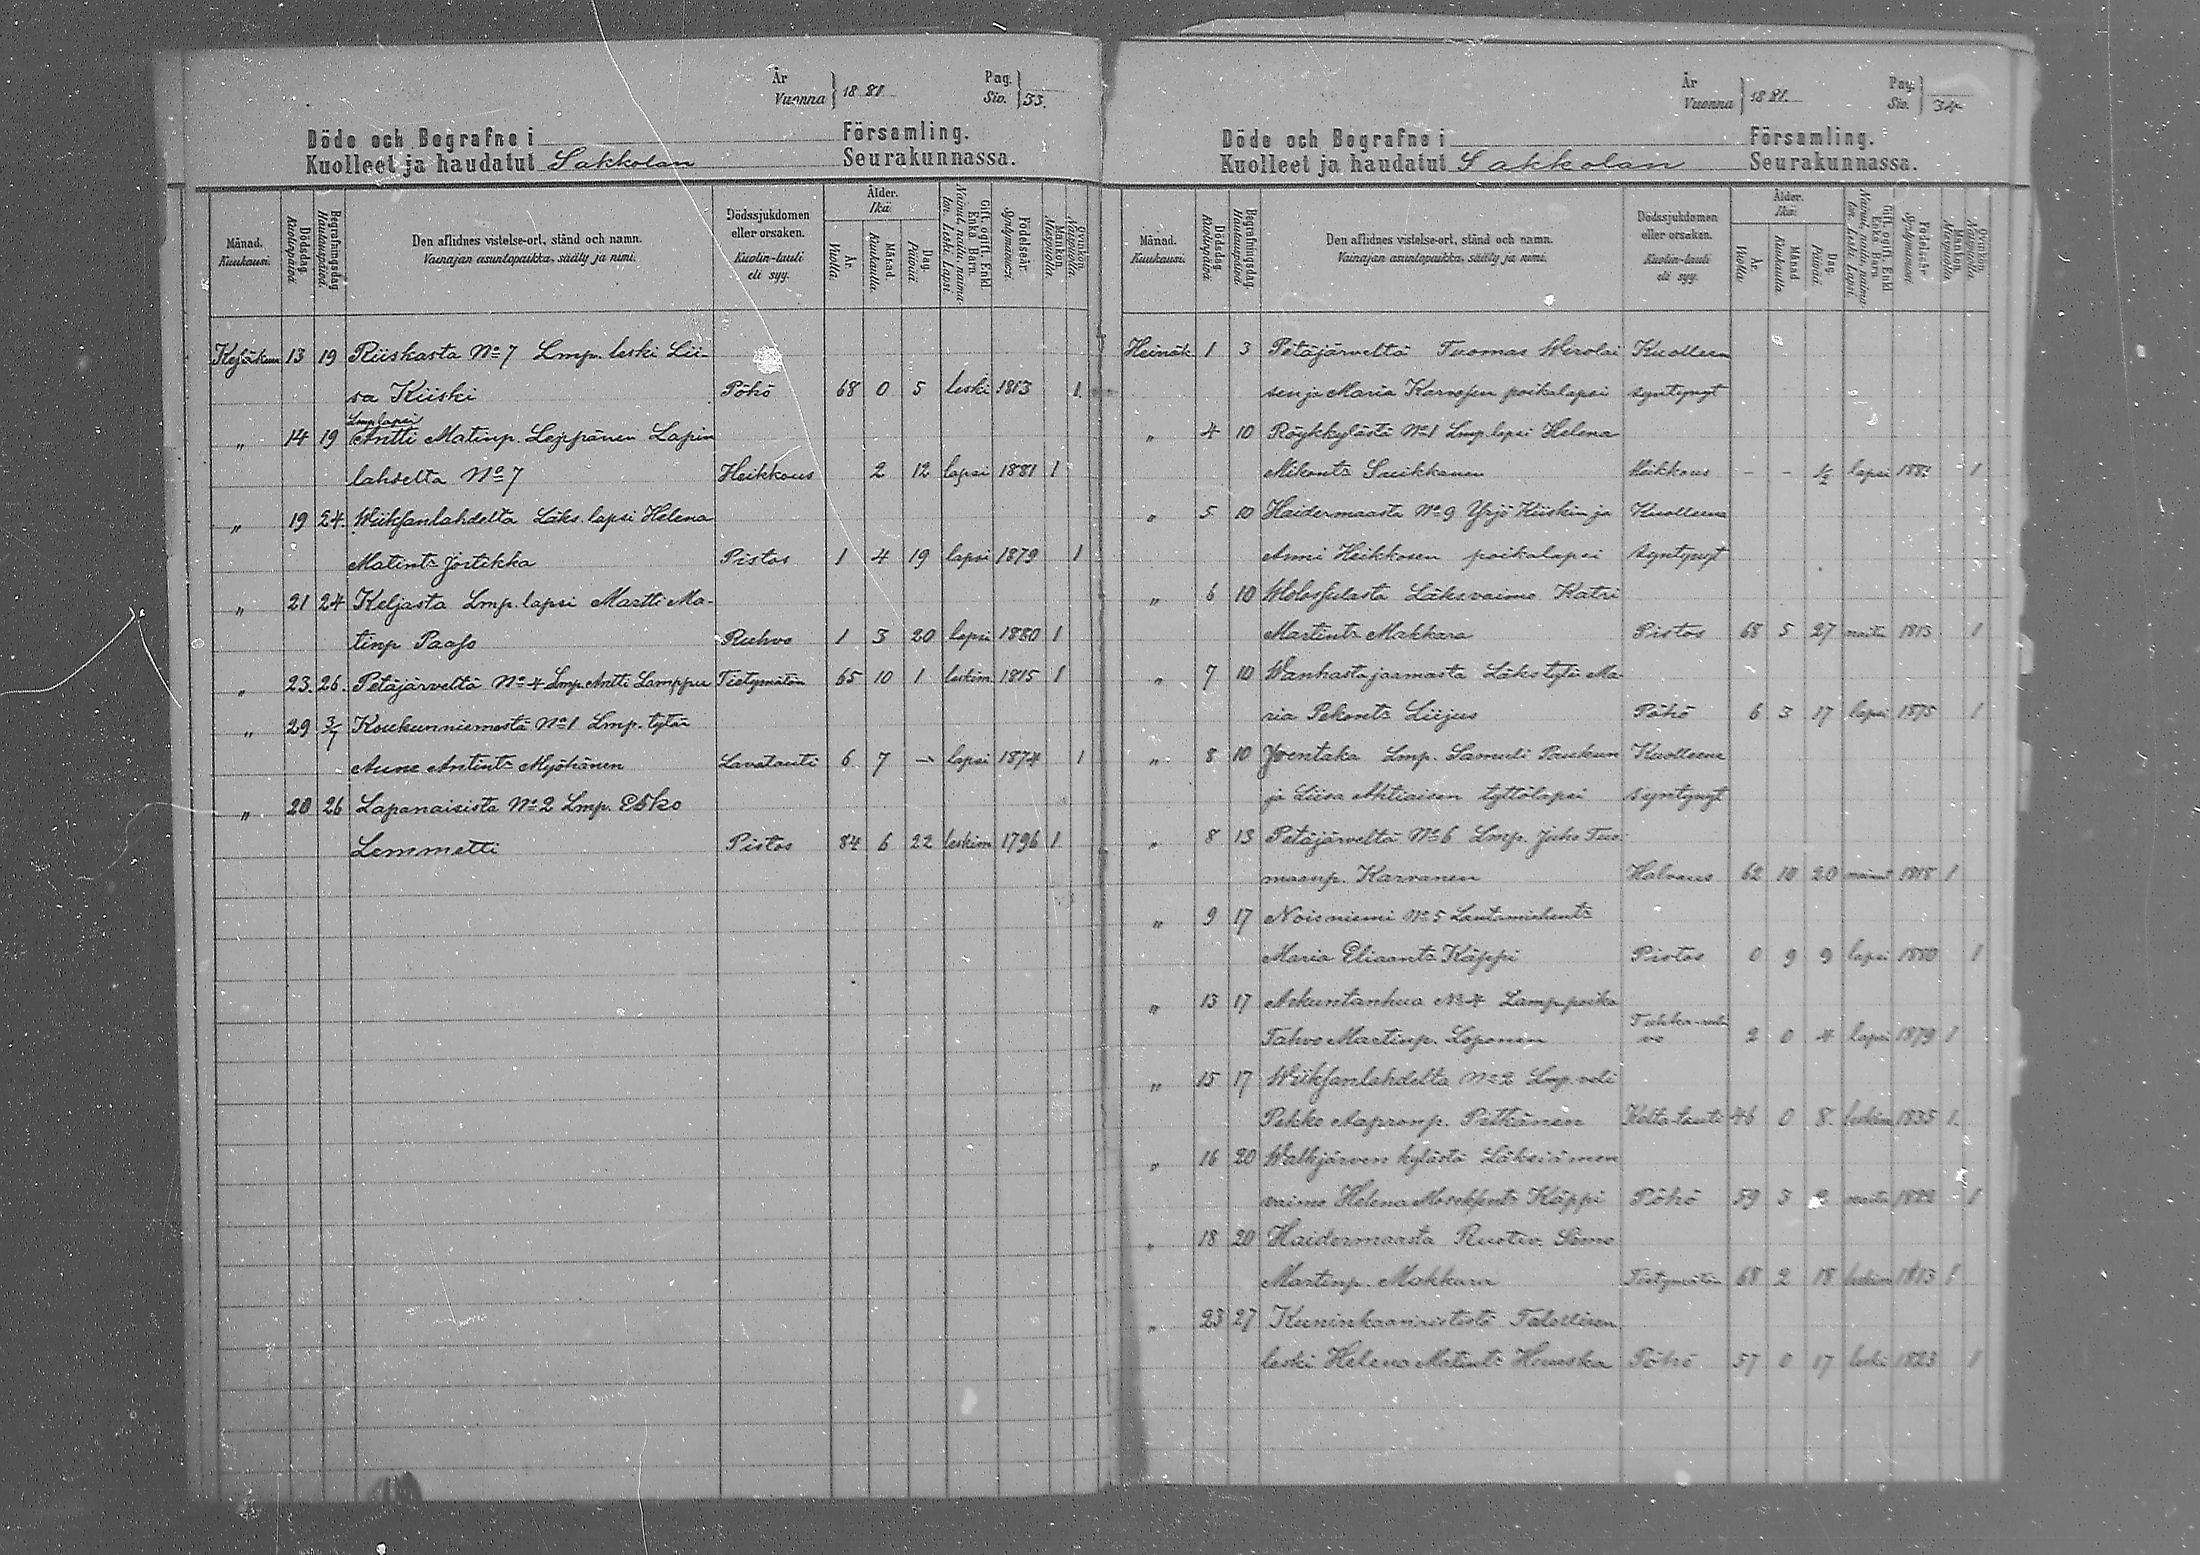 År
Vuonna } 1881
Pag.
Siv. } 33.
Döde och Begrafne i Församling.
Kuolleet ja haudatut Sakkolan Seurakunnassa.
Månad. Kuukausi.
Dödsdag. Kuolinpäivä.
Begrafningsdag. Hautauspäivä.
Den aflidnes vistelse-ort, stånd och namn.
Vainajan asuntopaikka, sääty ja nimi.
Dödssjukdomen eller orsaken.
Kuolin-tauti eli syy.
Ålder. Ikä.
År. Vuotta.
Månad. Kuukautta.
Dag. Päivää.
Gift, ogift, Enkl. Enka, Barn.
Nainut, naitu, naima-ton, Leski, Lapsi.
Födelseår. Syntymävuosi.
Mankön. Miespuolia.
Qvinkön. Naispuolia.
Kesäkuu 13 19 Riiskasta No 7 Lmp. leski Lii-
sa Kiiski Pöhö 68 0 5 leski 1813 1.
Lmp lapsi
" 14 19 Antti Matinp. Leppänen Lapin
lahdelta No 7 Heikkous 2 12 lapsi 1881 1
" 19 24 Wiiksanlahdelta Läks. lapsi Helena
Matint. Jörtikka Pistos 1 4 19 lapsi 1879 1
" 21 24 Keljasta Lmp. lapsi Martti Ma-
tinp Paaso Ruhvo 1 3 20 lapsi 1880 1
" 23. 26. Petäjärveltä No 4 Lmp. Antti Lamppu Tietymätön 65 10 1 leskim 1815 1
" 29 3/7 Koukunniemestä No 1 Lmp. tytär
Anne Antint. Myöhänen Lavatauti 6 7 - lapsi 1874 1
" 20 26 Lapanaisista No 2 Lmp. Esko
Lemmetti Pistos 84 6 22 leskim 1796 1.
År
Vuonna } 1881.
Pag.
Siv. } 34
Döde och Begrafne i Församling.
Kuolleet ja haudatut Sakkolan Seurakunnassa.
Månad. Kuukausi.
Dödsdag. Kuolinpäivä.
Begrafningsdag. Hautauspäivä.
Den aflidnes vistelse-ort, stånd och namn.
Vainajan asuntopaikka, sääty ja nimi.
Dödssjukdomen eller orsaken.
Kuolin-tauti eli syy.
Ålder. Ikä.
År. Vuotta.
Månad. Kuukautta.
Dag. Päivää.
Gift, ogift, Enkl. Enka, Barn.
Nainut, naitu, naima-ton, Leski, Lapsi.
Födelseår. Syntymävuosi.
Mankön. Miespuolia.
Qvinkön. Naispuolia.
Heinäk. 1 3 Petäjärveltä Tuomas Wirolai Kuolleena
sen ja Maria Karvosen poikalapsi syntynyt
" 4 10 Röykkylästä No 1 Lmp. lapsi Helena
Mikont. Suikkanen Heikkous - - 1/2 lapsi 1881 1
" 5 10 Haidermaasta No 9 Yrjö Kiiskin ja Kuolleena
Anni Heikkosen poikalapsi syntynyt
" 6 10 Läksvaimo Katri
Martint. Makkara Pistos 68 5 27 naitu 1813 1
" 7 10 Wanhastajaamasta Läks tytär Ma-
ria Pekont. Liijus Pöhö 6 3 17 lapsi 1875 1
" 8 10 Joentaka Lmp. Samuli Paukun Kuolleena
ja Liisa Ahtiaisen tyttölapsi syntynyt
" 8 13 Petäjärveltä No 6 Lmp. Juho Tuo-
maanp. Karvanen Halvaus 62 10 20 nainut 1818 1
" 9 17 Noisniemi No 5 Lautamiehent.
Maria Eliaant. Käppi Pistos 0 9 9 lapsi 1880 1
" 13 17 Askuntanhua No 4 Lamp. poika
Tahvo Martinp. Loponen Tuhka-ruh-
vo 2 0 4 lapsi 1879 1
" 15 17 Wiiksanlahdelta No 2 Lmp. veli
Pekko Aapromp. Pitkänen Kelta-tauti 46 0 8. leskim 1835 1.
" 16 20 Walkjärven kylästä Läksiämen
vaimo Helena Käppi Pöhö 59 3 9 naitu 1822 1
" 18 20 Haidermaasta Ruotiv. Simo
Martinp. Makkara Tietymätön 68 2 18 leskim 1813 1
" 23 27 Kuninkaanrististä Talollisen
leski Helena Matint. Hauska Pöhö 57 0 17 leski 1823 1